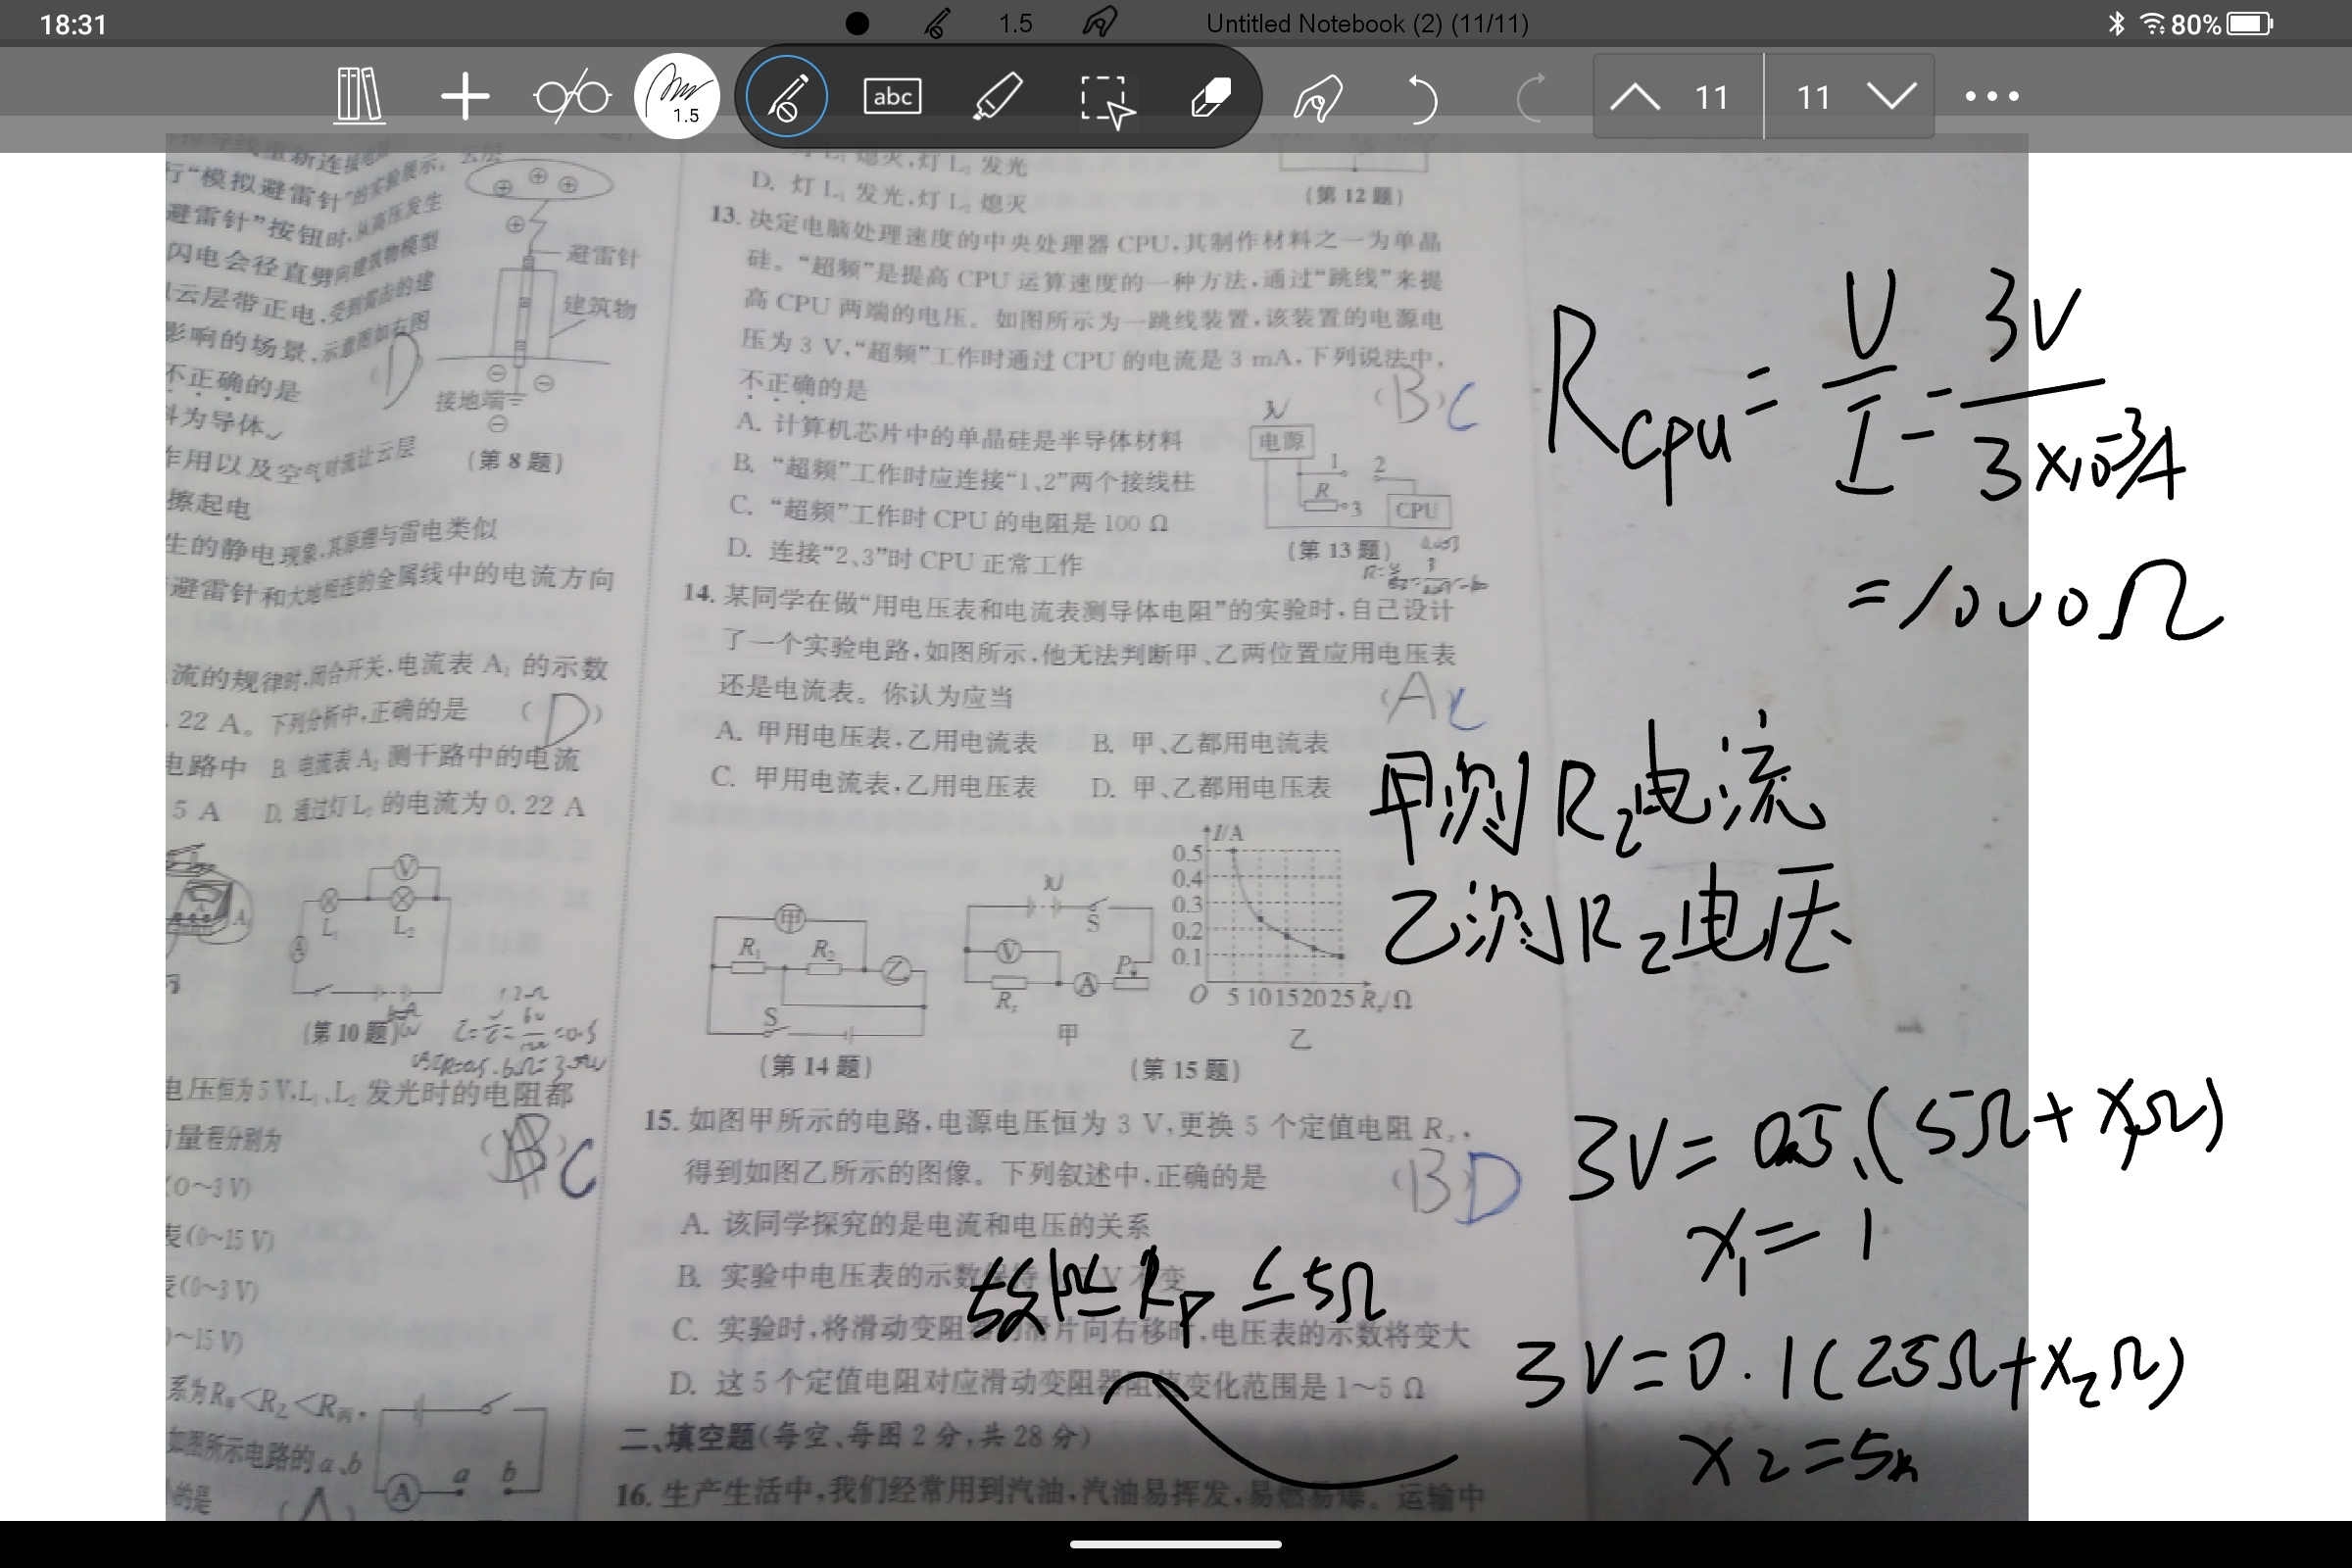 18:31
1.5
Untitled Notebook (2) (11/11)
80%
1.5
abc
11
11
行“模拟避雷针”的实验展示,
云层
避雷针”按钮时,从高压发生
闪电会径直劈向建筑物模型
云层带正电,受到雷击的建
影响的场景,示意图如右图
不正确的是
D
避雷针
建筑物
接地端
(第 8 题)
料为导体
作用以及空气对流让云层
擦起电
生的静电现象,其原理与雷电类似
避雷针和大地相连的金属线中的电流方向
流的规律时,闭合开关,电流表 A₁ 的示数
. 22 A。下列分析中,正确的是 (D)
电路中 B. 电流表 A₂ 测干路中的电流
5 A D. 通过灯 L₂ 的电流为 0. 22 A
V
L₁
L₂
A
(第 10 题)
电压恒为 5 V,L₁、L₂ 发光时的电阻都
量程分别为
(B) C
(0～3 V)
表(0～15 V)
(0～3 V)
～15 V)
系为 R甲<R乙<R丙,
如图所示电路的 a、b
的是
(A)
A a b
灯 L₁ 熄灭,灯 L₂ 发光
D. 灯 L₁ 发光,灯 L₂ 熄灭
(第 12 题)
13. 决定电脑处理速度的中央处理器 CPU,其制作材料之一为单晶
硅。“超频”是提高 CPU 运算速度的一种方法,通过“跳线”来提
高 CPU 两端的电压。如图所示为一跳线装置,该装置的电源电
压为 3 V,“超频”工作时通过 CPU 的电流是 3 mA,下列说法中,
不正确的是 (B) C
A. 计算机芯片中的单晶硅是半导体材料
B. “超频”工作时应连接“1、2”两个接线柱
C. “超频”工作时 CPU 的电阻是 100 Ω
D. 连接“2、3”时 CPU 正常工作
3V
电源
1 2
R
3
CPU
(第 13 题)
14. 某同学在做“用电压表和电流表测导体电阻”的实验时,自己设计
了一个实验电路,如图所示,他无法判断甲、乙两位置应用电压表
还是电流表。你认为应当 (A) C
A. 甲用电压表,乙用电流表 B. 甲、乙都用电流表
C. 甲用电流表,乙用电压表 D. 甲、乙都用电压表
甲
R₁ R₂
乙
S
(第 14 题)
3V
S
V
Rₓ
A
P
甲
I/A
0.5
0.4
0.3
0.2
0.1
O 5 10 15 20 25 Rₓ/Ω
乙
(第 15 题)
15. 如图甲所示的电路,电源电压恒为 3 V,更换 5 个定值电阻 Rₓ,
得到如图乙所示的图像。下列叙述中,正确的是 (B) D
A. 该同学探究的是电流和电压的关系
B. 实验中电压表的示数保持 V 不变
C. 实验时,将滑动变阻器的滑片向右移时,电压表的示数将变大
D. 这 5 个定值电阻对应滑动变阻器阻值变化范围是 1～5 Ω
二、填空题(每空、每图 2 分,共 28 分)
16. 生产生活中,我们经常用到汽油,汽油易挥发,易燃易爆。运输中
Rcpu = U/I = 3V/3×10⁻³A
= 1000Ω
甲测R₂电流
乙测R₂电压
3V = 0.5.(5Ω+X₁Ω)
X₁ = 1
故1Ω≤Rp≤5Ω
3V = 0.1(25Ω+X₂Ω)
X₂ = 5